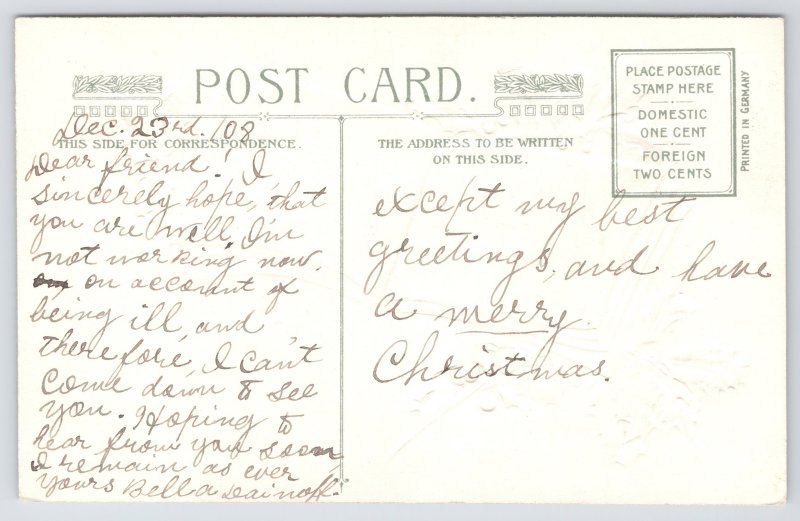 POST CARD.
PLACE POSTAGE
STAMP HERE
DOMESTIC
ONE CENT
FOREIGN
TWO CENTS
PRINTED IN GERMANY
THIS SIDE FOR CORRESPONDENCE.
THE ADDRESS TO BE WRITTEN
ON THIS SIDE.
Dec. 23rd. /08
Dear friend! I
sincerely hope, that
you are well, I'm
not working now,
on account of
being ill, and
therefore, I can't
come down to see
you. Hoping to
hear from you soon,
I remain as ever
yours Bella
except my best
greetings, and have
a merry
Christmas.